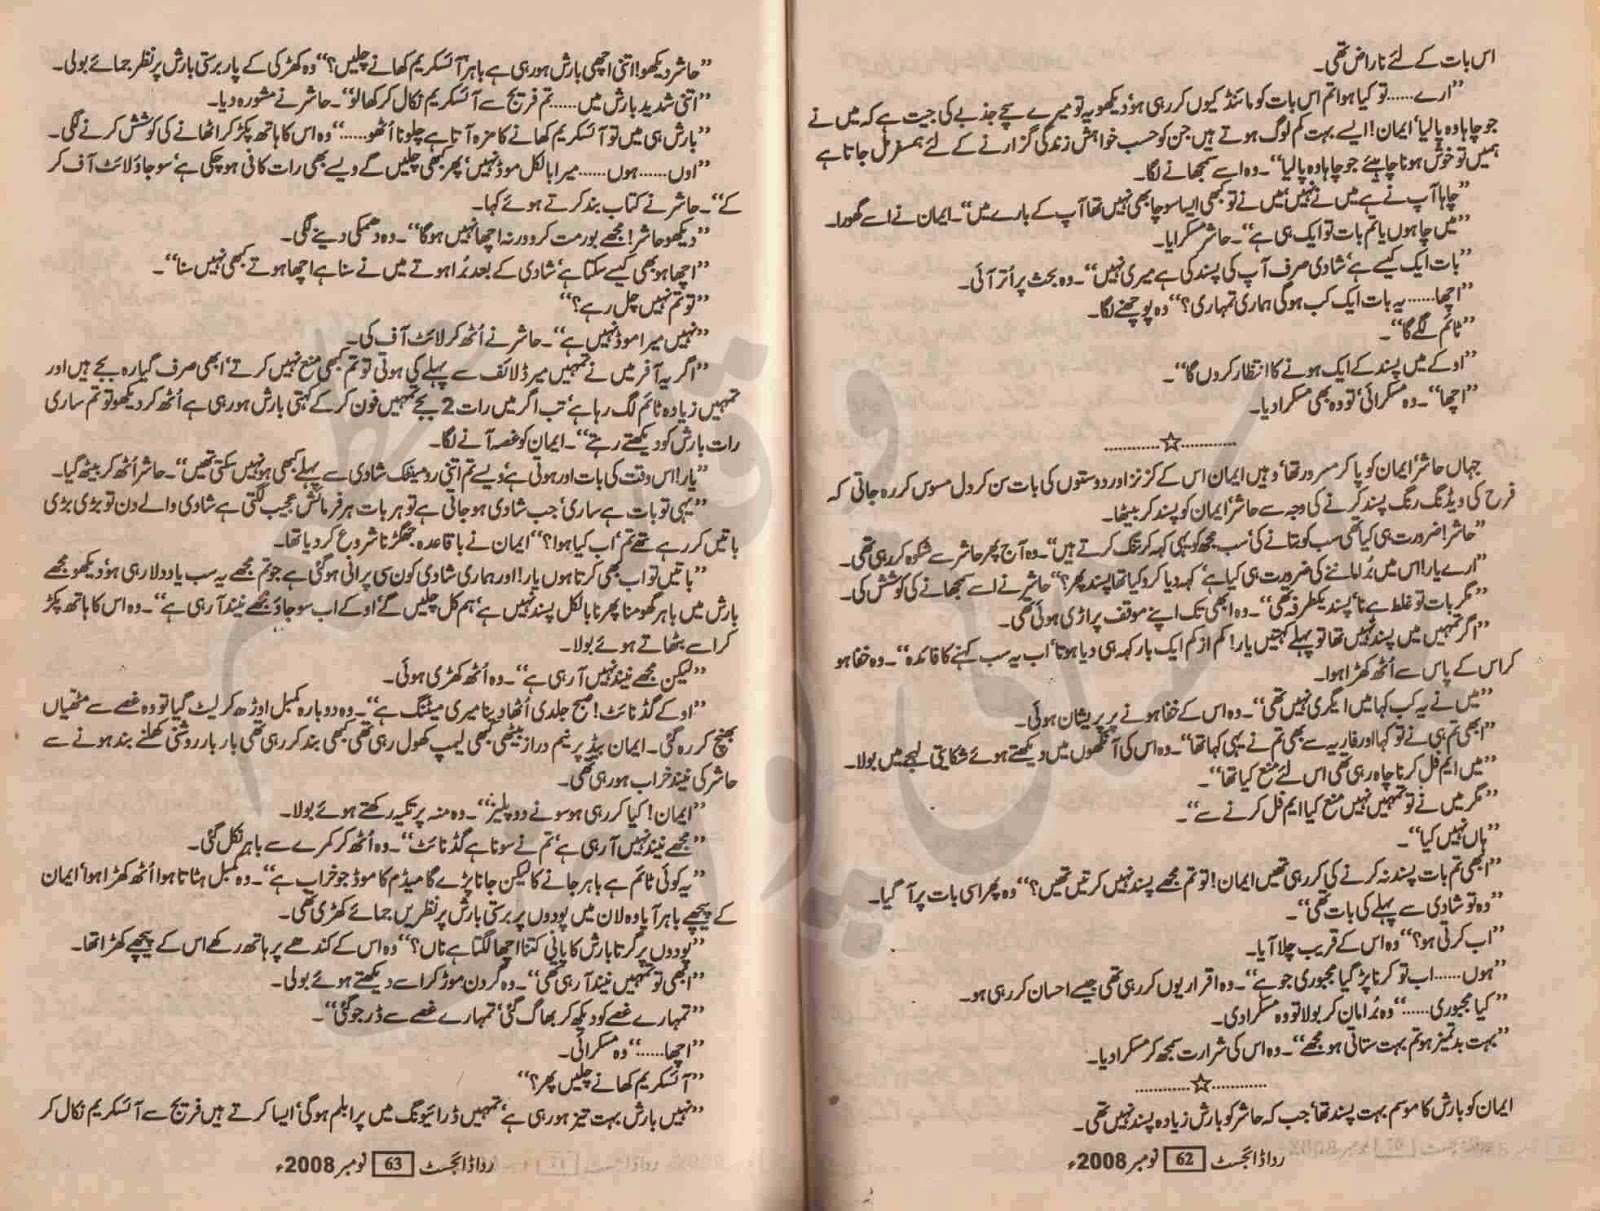 اس بات کے لئے ناراض تھی۔
’’ارے...... تو کیا ہوا تم اس بات کو مائنڈ کیوں کر رہی ہو‘ دیکھو یہ تو میرے سچے جذبے کی جیت ہے کہ میں نے
جو چاہا وہ پا لیا‘ ایمان! ایسے بہت کم لوگ ہوتے ہیں جن کو حسب خواہش زندگی گزارنے کے لئے ہمسفر مل جاتا ہے
ہمیں تو خوش ہونا چاہئے جو چاہا وہ پا لیا‘‘۔ وہ اسے سمجھانے لگا۔
’’چاہا آپ نے ہے میں نے نہیں میں نے تو کبھی ایسا سوچا بھی نہیں تھا آپ کے بارے میں‘‘۔ ایمان نے اسے گھورا۔
’’میں چاہوں یا تم بات تو ایک ہی ہے‘‘۔ حاشر مسکرایا۔
’’بات ایک کیسے ہے‘ شادی صرف آپ کی پسند کی ہے میری نہیں‘‘۔ وہ بحث پر اُتر آئی۔
’’اچھا...... یہ بات ایک کب ہوگی ہماری تمہاری؟‘‘ وہ پوچھنے لگا۔
’’ٹائم لگے گا‘‘۔
’’اوکے میں پسند کے ایک ہونے کا انتظار کروں گا‘‘۔
’’اچھا‘‘۔ وہ مسکرائی‘ تو وہ بھی مسکرا دیا۔
............☆............
جہاں حاشر‘ ایمان کو پا کر مسرور تھا‘ وہیں ایمان اس کے کزنز اور دوستوں کی بات سن کر دل مسوس کر رہ جاتی کہ
فرح کی ویڈنگ رنگ پسند کرنے کی وجہ سے حاشر‘ ایمان کو پسند کر بیٹھا۔
’’حاشر! ضرورت ہی کیا تھی سب کو بتانے کی‘ سب مجھ کو یہی کہہ کر تنگ کرتے ہیں‘‘۔ وہ آج پھر حاشر سے شکوہ کر رہی تھی۔
’’ارے یار! اس میں بُرا ماننے کی ضرورت ہی کیا ہے‘ کہہ دیا کرو کیا تھا پسند پھر؟‘‘ حاشر نے اسے سمجھانے کی کوشش کی۔
’’مگر بات تو غلط ہے نا‘ پسند یکطرفہ تھی‘‘۔ وہ ابھی تک اپنے موقف پر اڑی ہوئی تھی۔
’’اگر تمہیں میں پسند نہیں تھا تو پہلے کہتیں یار! کم از کم ایک بار کہہ ہی دیا ہوتا‘ اب یہ سب کہنے کا فائدہ‘‘۔ وہ خفا ہو
کر اس کے پاس سے اُٹھ کھڑا ہوا۔
’’میں نے یہ کب کہا میں ایگری نہیں تھی‘‘۔ وہ اس کے خفا ہونے پر پریشان ہوئی۔
’’ابھی تم ہی نے تو کہا اور فاریہ سے بھی تم نے یہی کہا تھا‘‘۔ وہ اس کی آنکھوں میں دیکھتے ہوئے شکایتی لہجے میں بولا۔
’’میں ایم فل کرنا چاہ رہی تھی اس لئے منع کیا تھا‘‘۔
’’مگر میں نے تو تمہیں نہیں منع کیا ایم فل کرنے سے‘‘۔
’’ہاں نہیں کیا‘‘۔
’’ابھی تم بات پسند نہ کرنے کی کر رہی تھیں ایمان! تو تم مجھے پسند نہیں کرتیں تھیں؟‘‘ وہ پھر اسی بات پر آ گیا۔
’’وہ تو شادی سے پہلے کی بات تھی‘‘۔
’’اب کرتی ہو؟‘‘ وہ اس کے قریب چلا آیا۔
’’ہوں...... اب تو کرنا پڑ گیا مجبوری جو ہے‘‘۔ وہ اقرار یوں کر رہی تھی جیسے احسان کر رہی ہو۔
’’کیا مجبوری......‘‘ وہ بُرا مان کر بولا تو وہ مسکرا دی۔
’’بہت بدتمیز ہو تم بہت ستاتی ہو مجھے‘‘۔ وہ اس کی شرارت سمجھ کر مسکرا دیا۔
............☆............
ایمان کو بارش کا موسم بہت پسند تھا‘ جب کہ حاشر کو بارش زیادہ پسند نہیں تھی۔
ردا ڈائجسٹ 62 نومبر 2008ء
’’حاشر دیکھو! اتنی اچھی بارش ہو رہی ہے باہر‘ آئسکریم کھانے چلیں؟‘‘ وہ کھڑکی کے پار برستی بارش پر نظر جمائے بولی۔
’’اتنی شدید بارش میں...... تم فریج سے آئسکریم نکال کر کھا لو‘‘۔ حاشر نے مشورہ دیا۔
’’بارش ہی میں تو آئسکریم کھانے کا مزہ آتا ہے چلو نا اُٹھو......‘‘ وہ اس کا ہاتھ پکڑ کر اٹھانے کی کوشش کرنے لگی۔
’’اوں...... ہوں...... میرا بالکل موڈ نہیں‘ پھر کبھی چلیں گے ویسے بھی رات کافی ہو چکی ہے‘ سو جاؤ لائٹ آف کر
کے‘‘۔ حاشر نے کتاب بند کرتے ہوئے کہا۔
’’دیکھو حاشر! مجھے بور مت کرو ورنہ اچھا نہیں ہوگا‘‘۔ وہ دھمکی دینے لگی۔
’’اچھا ہو بھی کیسے سکتا ہے‘ شادی کے بعد بُرا ہوتے میں نے سنا ہے اچھا ہوتے کبھی نہیں سنا‘‘۔
’’تو تم نہیں چل رہے؟‘‘
’’نہیں میرا موڈ نہیں ہے‘‘۔ حاشر نے اُٹھ کر لائٹ آف کی۔
’’اگر یہ آفر میں نے تمہیں میرڈ لائف سے پہلے کی ہوتی تو تم کبھی منع نہیں کرتے‘ ابھی صرف گیارہ بجے ہیں اور
تمہیں زیادہ ٹائم لگ رہا ہے‘ تب اگر میں رات 2 بجے تمہیں فون کر کے کہتی بارش ہو رہی ہے اُٹھ کر دیکھو تو تم ساری
رات بارش کو دیکھتے رہتے‘‘۔ ایمان کو غصہ آنے لگا۔
’’یار! اس وقت کی بات اور ہوتی ہے‘ ویسے تم اتنی رومینٹک شادی سے پہلے کبھی ہو نہیں سکتی تھیں‘‘۔ حاشر اُٹھ کر بیٹھ گیا۔
’’یہی تو بات ہے ساری‘ جب شادی ہو جاتی ہے تو ہر بات ہر فرمائش عجیب لگتی ہے شادی والے دن تو بڑی بڑی
باتیں کر رہے تھے تم‘ اب کیا ہوا؟‘‘ ایمان نے باقاعدہ جھگڑنا شروع کر دیا تھا۔
’’باتیں تو اب بھی کرتا ہوں یار! اور ہماری شادی کون سی پرانی ہو گئی ہے جو تم مجھے یہ سب یاد دلا رہی ہو‘ دیکھو مجھے
بارش میں باہر گھومنا پھرنا بالکل پسند نہیں ہے‘ ہم کل چلیں گے‘ اوکے اب سو جاؤ مجھے نیند آ رہی ہے‘‘۔ وہ اس کا ہاتھ پکڑ
کر اسے بٹھاتے ہوئے بولا۔
’’لیکن مجھے نیند نہیں آ رہی ہے‘‘۔ وہ اُٹھ کھڑی ہوئی۔
’’اوکے گڈ نائٹ! صبح جلدی اُٹھا دینا میری میٹنگ ہے‘‘۔ وہ دوبارہ کمبل اوڑھ کر لیٹ گیا تو وہ غصے سے مٹھیاں
بھینچ کر رہ گئی۔ ایمان بیڈ پر نیم دراز بیٹھی کبھی لیمپ کھول رہی تھی کبھی بند کر رہی تھی بار بار روشنی کھلنے بند ہونے سے
حاشر کی نیند خراب ہو رہی تھی۔
’’ایمان! کیا کر رہی ہو سونے دو پلیز‘‘۔ وہ منہ پر تکیہ رکھتے ہوئے بولا۔
’’مجھے نیند نہیں آ رہی ہے‘ تم نے سونا ہے گڈ نائٹ‘‘۔ وہ اُٹھ کر کمرے سے باہر نکل گئی۔
’’یہ کوئی ٹائم ہے باہر جانے کا لیکن جانا پڑے گا میڈم کا موڈ جو خراب ہے‘‘۔ وہ کمبل ہٹاتا ہوا اُٹھ کھڑا ہوا‘ ایمان
کے پیچھے باہر آیا وہ لان میں پودوں پر برستی بارش پر نظریں جمائے کھڑی تھی۔
’’پودوں پر گرتا بارش کا پانی کتنا اچھا لگتا ہے ناں؟‘‘ وہ اس کے کندھے پر ہاتھ رکھے اس کے پیچھے کھڑا تھا۔
’’ابھی تو تمہیں نیند آ رہی تھی‘‘۔ وہ گردن موڑ کر اسے دیکھتے ہوئے بولی۔
’’تمہارے غصے کو دیکھ کر بھاگ گئی‘ تمہارے غصے سے ڈر جو گئی‘‘۔
’’اچھا......‘‘ وہ مسکرائی۔
’’آئسکریم کھانے چلیں پھر؟‘‘
’’نہیں بارش بہت تیز ہو رہی ہے‘ تمہیں ڈرائیونگ میں پرابلم ہوگی‘ ایسا کرتے ہیں فریج سے آئسکریم نکال کر
ردا ڈائجسٹ 63 نومبر 2008ء